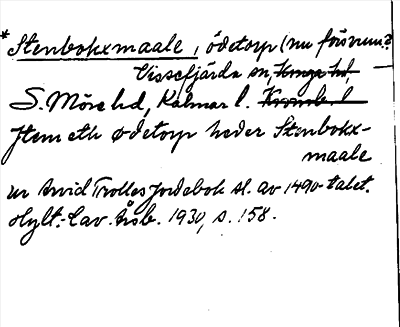 * Stenbokxmaale, ödetorp (nu försvun.?)
Vissefjärda sn, Konga hd,
S. Möre hd, Kalmar l. Kronob. l
Jtem eth ødetorp heder Stenbokx-
maale
ur Arvid Trolles Jordebok sl. av 1490-talet.
Hylt.-Cav. Årsb. 1930, s. 158.